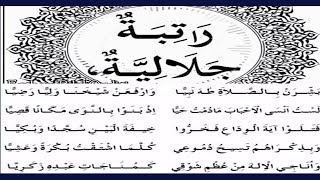 رَاتِبَةٌ
جَلَالِيَّةٌ
بِالصَّلَاةِ طَهَ نَبِيَّا وَارْفَعَنْ شَيْخَنَا وَلِيًّا رَضِيًّا
لَسْتُ أَنْسَى الْأَحْبَابَ مَادُمْتُ حَيًّا اِذْ بِالنَّوَى مَكَانًا قَصِيًّا
فَتَلَوْا آيَةَ الْوِدَاعِ فَخَرُّوْا خِيفَةَ الْبَيْنِ سُجَّدًا وَبُكِيًّا
وَبِذِكْرَاهُمُ تَسِيحُ دُمُوعِي كُلَّمَا اشْتَقْتُ بُكْرَةً وَعَشِيًّا
وَأُنَاجِي الْإِلَهَ مِنْ عُظْمِ شَوْقِي كَمُنَاجَاتِ عَبْدِهِ زَكَرِيَّا